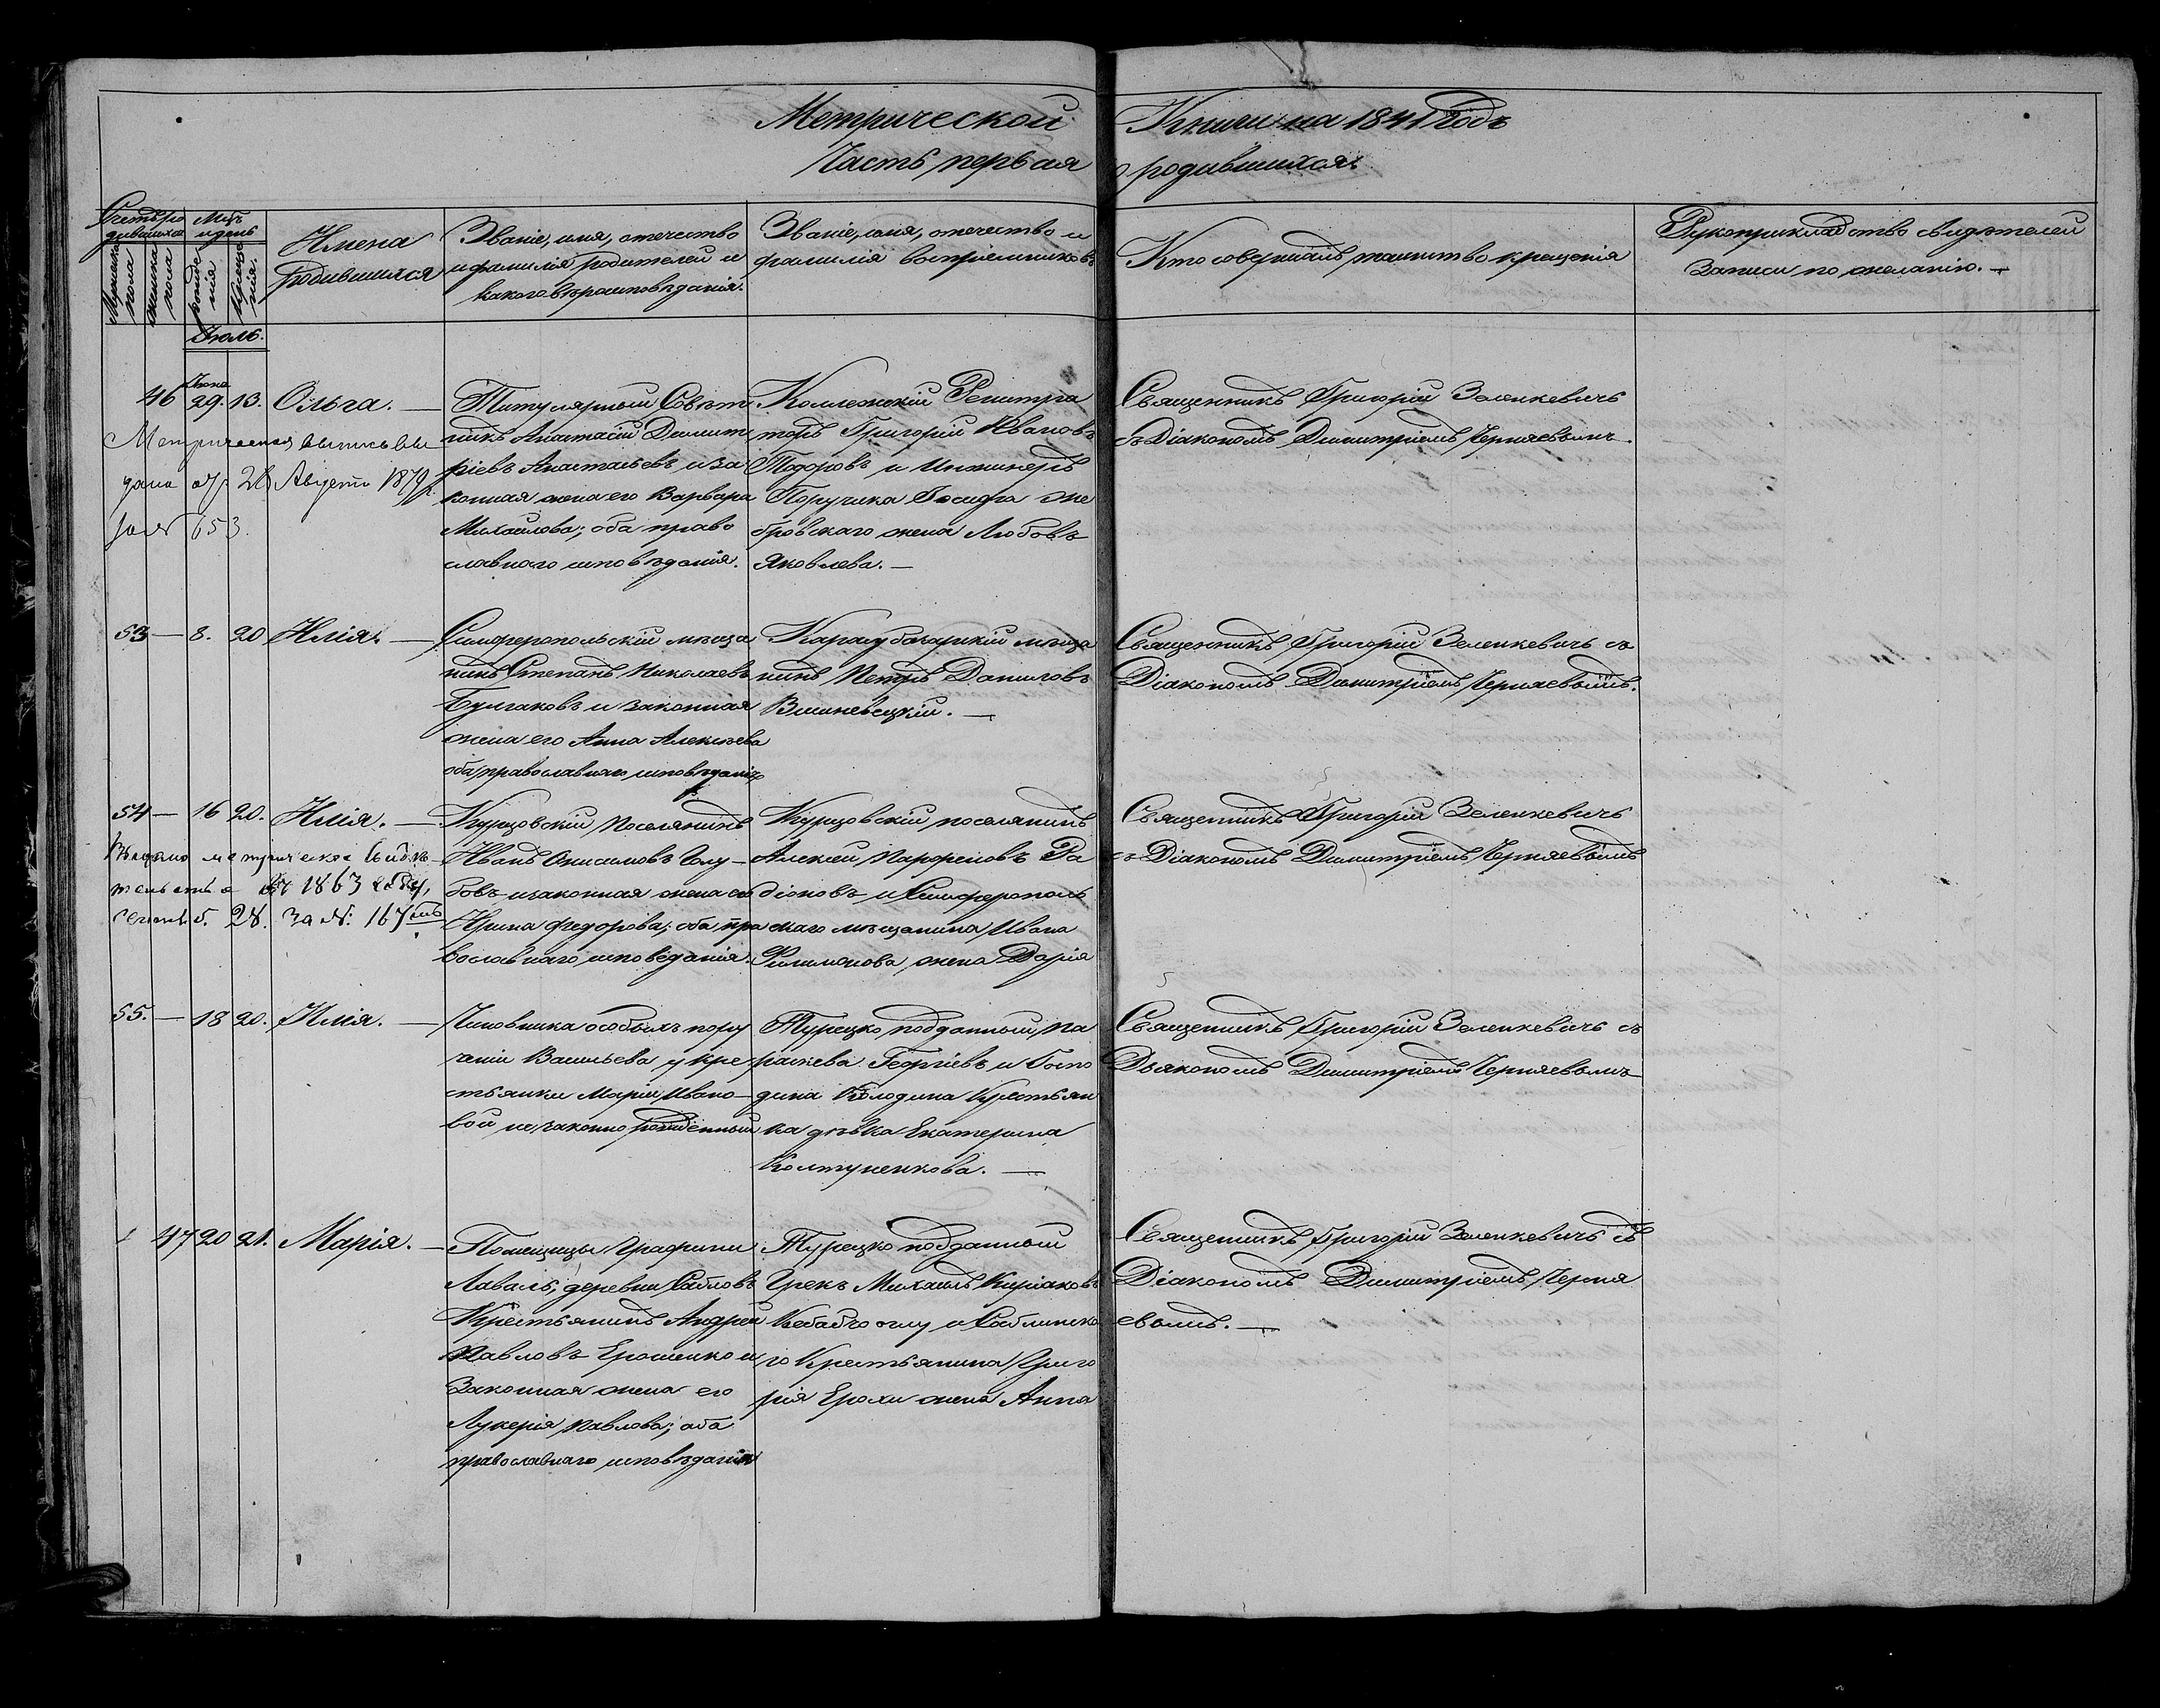 Метрической Книги на 1841 Годъ
Часть первая о родившихся
Счетъ ро
дившихся
Мужеска
пола
женска
пола
Мѣс.
и день
рожде
нія
Крещен
нія.
Имена
Родившихся
Званіе, имя, отчество
и фамилія родителей и
какого вѣроисповѣданія.
Званіе, имя, отчество и
фамилія воспріемниковъ
Кто совершалъ таинство крещенія
Рукоприкладство свидѣтелей
Записи по желанію. —
Іюль.
46 Іюня 29. 13. Ольга. —
Метрическая выпись вы
дана 28 Августа 1879
за № 653.
Титулярный Совѣт
никъ Анастасій Димит
ріевъ Анастасьевъ и за
конная жена его Варвара
Михайлова; оба право
славнаго исповѣданія.
Коллежскій Регистра
торъ Григорій Ивановъ
Тодоровъ и Инженеръ
Поручика
бровскаго жена Любовь
Яковлева. —
Священникъ Григорій Зеленкевичъ
съ Діакономъ Димитріемъ Черняевымъ.
53 — 8. 20 Илія. —
Симферопольскій мѣща
нинъ Степанъ Николаевъ
Булгаковъ и законная
жена его Анна Алексѣева
оба православнаго исповѣданія
Карасубазарскій мѣща
нинъ Петръ Даниловъ
Вишневецкій. —
Священникъ Григорій Зеленкевичъ съ
Діакономъ Димитріемъ Черняевымъ.
54 — 16 20. Илія. —
Выдано метрическое свидѣ
тельство въ 1863 году,
28. за №: 167
Курцовскій Поселянинъ
Иванъ Онисимовъ Голу—
бовъ и законная жена его
Ирина Федорова; оба пра
вославнаго исповеданія.
Курцовскій поселянинъ
Алексей Парфеновъ Ра
діоновъ и Симферополь
скаго мѣщанина Ивана
Филимонова жена Дарія
Священникъ Григорій Зеленкевичъ
съ Діакономъ Димитріемъ Черняевымъ
55. — 18 20. Илія. —
Чиновника особыхъ пору
ченій Васильева у кре
стьянки Маріи Ивано—
вой незаконно рожденный
Турецко подданный Па
раскева Георгіевъ и Госпо
дина Колодина Крестьян
ка дѣвка Екатерина
Колтуненкова. —
Священникъ Григорій Зеленкевичъ съ
Дьякономъ Димитріемъ Черняевымъ
47 20 21. Марія. —
Помещицы Графини
Лаваль, деревни Сабловъ
Крестьянинъ Андрей
Павловъ Ерошенко и
Законная жена его
Лукерія Павлова; оба
православнаго исповѣданія
Турецко подданный
Грекъ Михаилъ Киріаковъ
Кебабчо оглу и Саблинска
го Крестьянина Григо
рія Ерохи жена Анна
Священникъ Григорій Зеленкевичъ съ
Діакономъ Димитріемъ Черня
евымъ. —